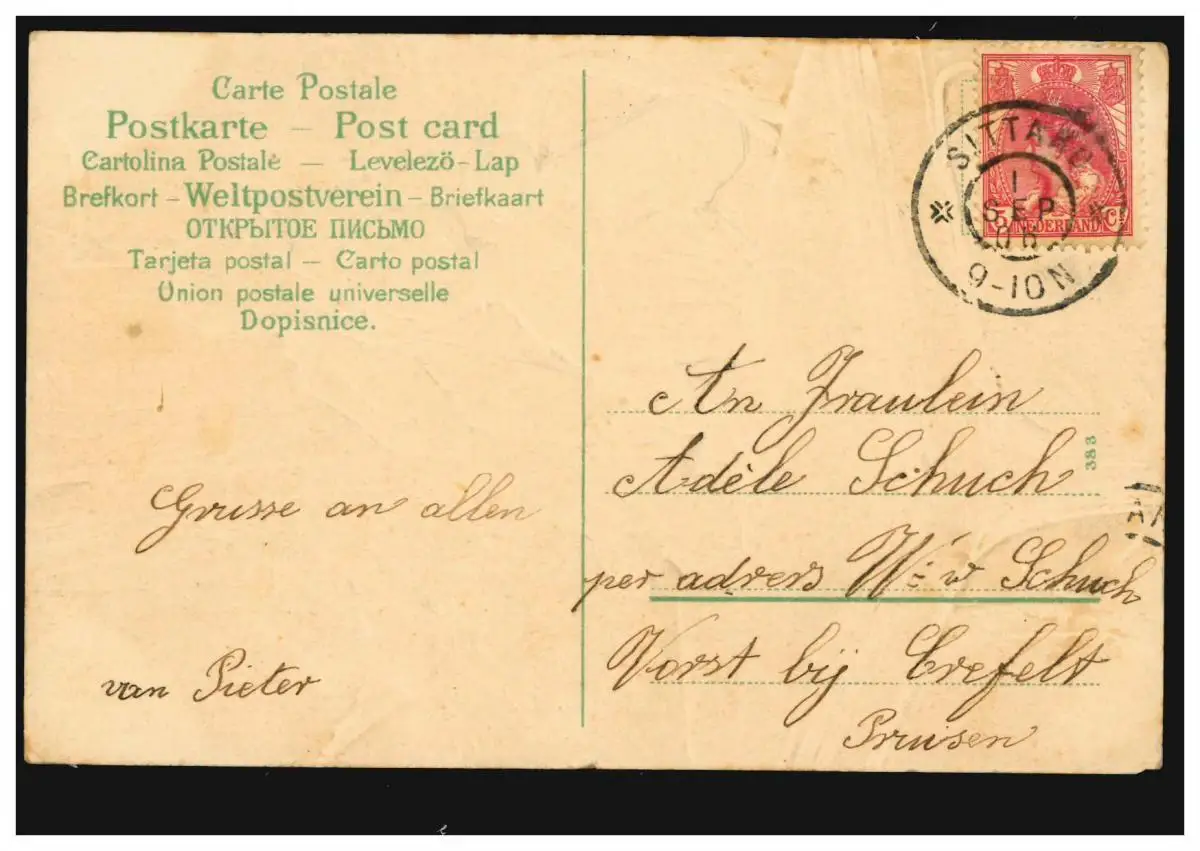 Carte Postale
Postkarte – Post card
Cartolina Postale – Levelezö-Lap
Brefkort – Weltpostverein – Briefkaart
ОТКРЫТОЕ ПИСЬМО
Tarjeta postal – Carto postal
Union postale universelle
Dopisnice.
Grusse an allen
van Pieter
SITTARD
1
SEP
06
9-10N
5 NEDERLAND Ct
An Fraulein
Adèle Schuch
383
per adres We w Schuch
Vorst bij Crefelt
Pruisen